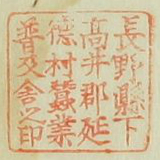 長野縣下
高井郡延
徳村蠶業
普及舍之印